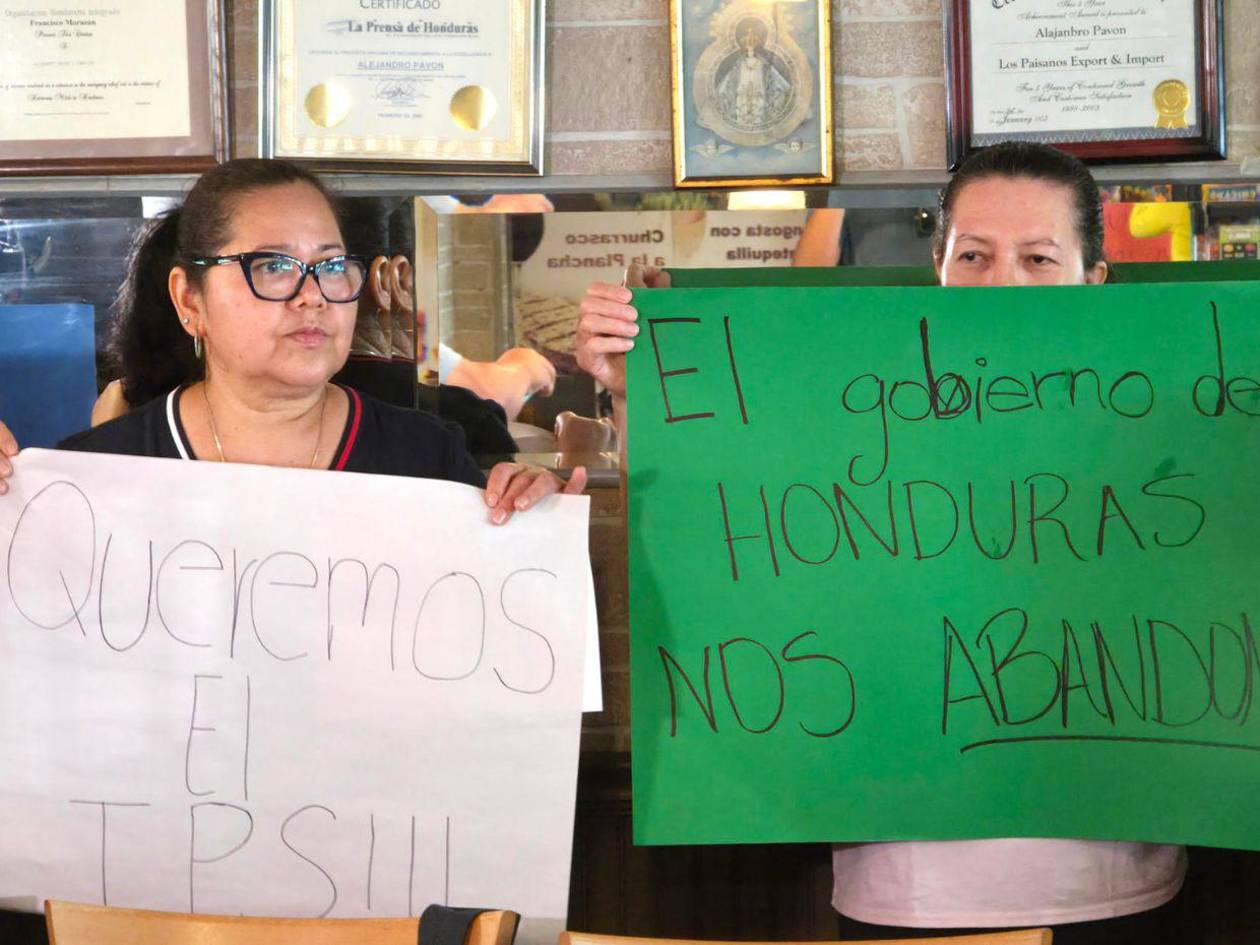 Francisco Morazan
CERTIFICADO
La Prensa de Honduras
ALEJANDRO PAVON
Achievement Award is presented to
Alajanbro Pavon
and
Los Paisanos Export & Import
For 5 Years of Continued Growth
And Customer Satisfaction
1998-2003
Churrasco
a la Plancha
ngosta con
tequilla
Queremos
El
TPS!!!
El gobierno de
HONDURAS
NOS ABANDO